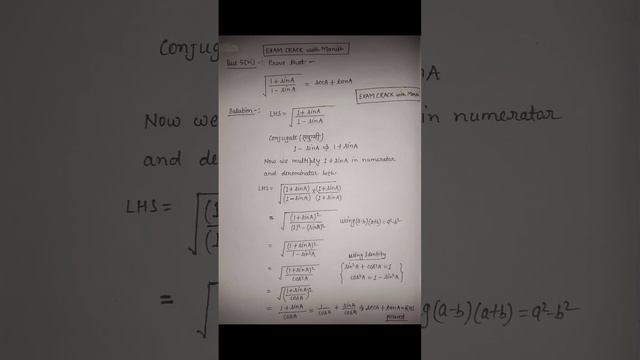 EXAM CRACK with Manish
Que 5(vi) -: Prove that -
√((1 + sinA)/(1 - sinA)) = secA + tanA
EXAM CRACK with Mani
Solution -:
LHS = √((1 + sinA)/(1 - sinA))
Conjugate (संयुग्मी)
1 - sinA ⇒ 1 + sinA
Now we multiply 1 + sinA in numerator
and denominator both
LHS = √((1 + sinA)/(1 - sinA) × (1 + sinA)/(1 + sinA))
= √((1 + sinA)²/((1)² - (sinA)²)) using (a-b)(a+b) = a²-b²
= √((1 + sinA)²/(1 - sin²A))
using Identity
= √((1 + sinA)²/cos²A) { sin²A + cos²A = 1
cos²A = 1 - sin²A }
= √((1 + sinA)/cosA)²
= (1 + sinA)/cosA = 1/cosA + sinA/cosA ⇒ secA + tanA = RHS
proved
Conjug
Now we
and de
LHS = √((1
(1
=
A
in numerator
g(a-b)(a+b) = a²-b²